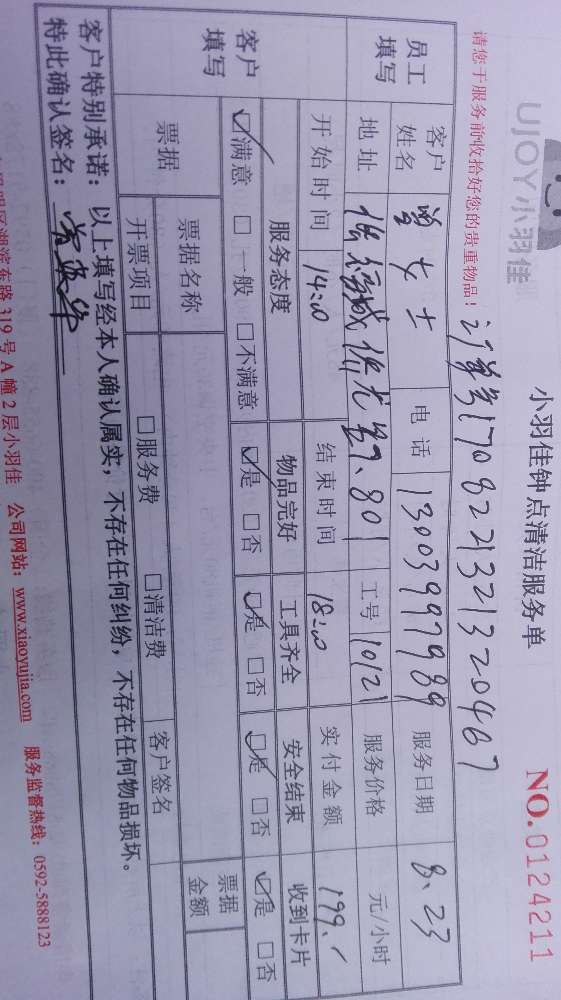 UJOY小羽佳
小羽佳钟点清洁服务单
NO.0124211
请您于服务前收拾好您的贵重物品!
订单号1708221321320467
员工填写
客户姓名 曾女士 电话 13003997989 服务日期 8.23
地址 7.801 工号 10121 服务价格 元/小时
开始时间 14:00 结束时间 18:00 实付金额 199.
客户填写
服务态度 物品完好 工具齐全 安全结束 收到卡片
☑满意 □一般 □不满意 ☑是 □否 ☑是 □否 ☑是 □否 ☑是 □否
票据 票据名称 票据金额
开票项目 □服务费 □清洁费 客户签名
客户特别承诺:以上填写经本人确认属实,不存在任何纠纷,不存在任何物品损坏。
特此确认签名:
湖滨东路319号A幢2层小羽佳 公司网站:www.xiaoyujia.com 服务监督热线:0592-5888123